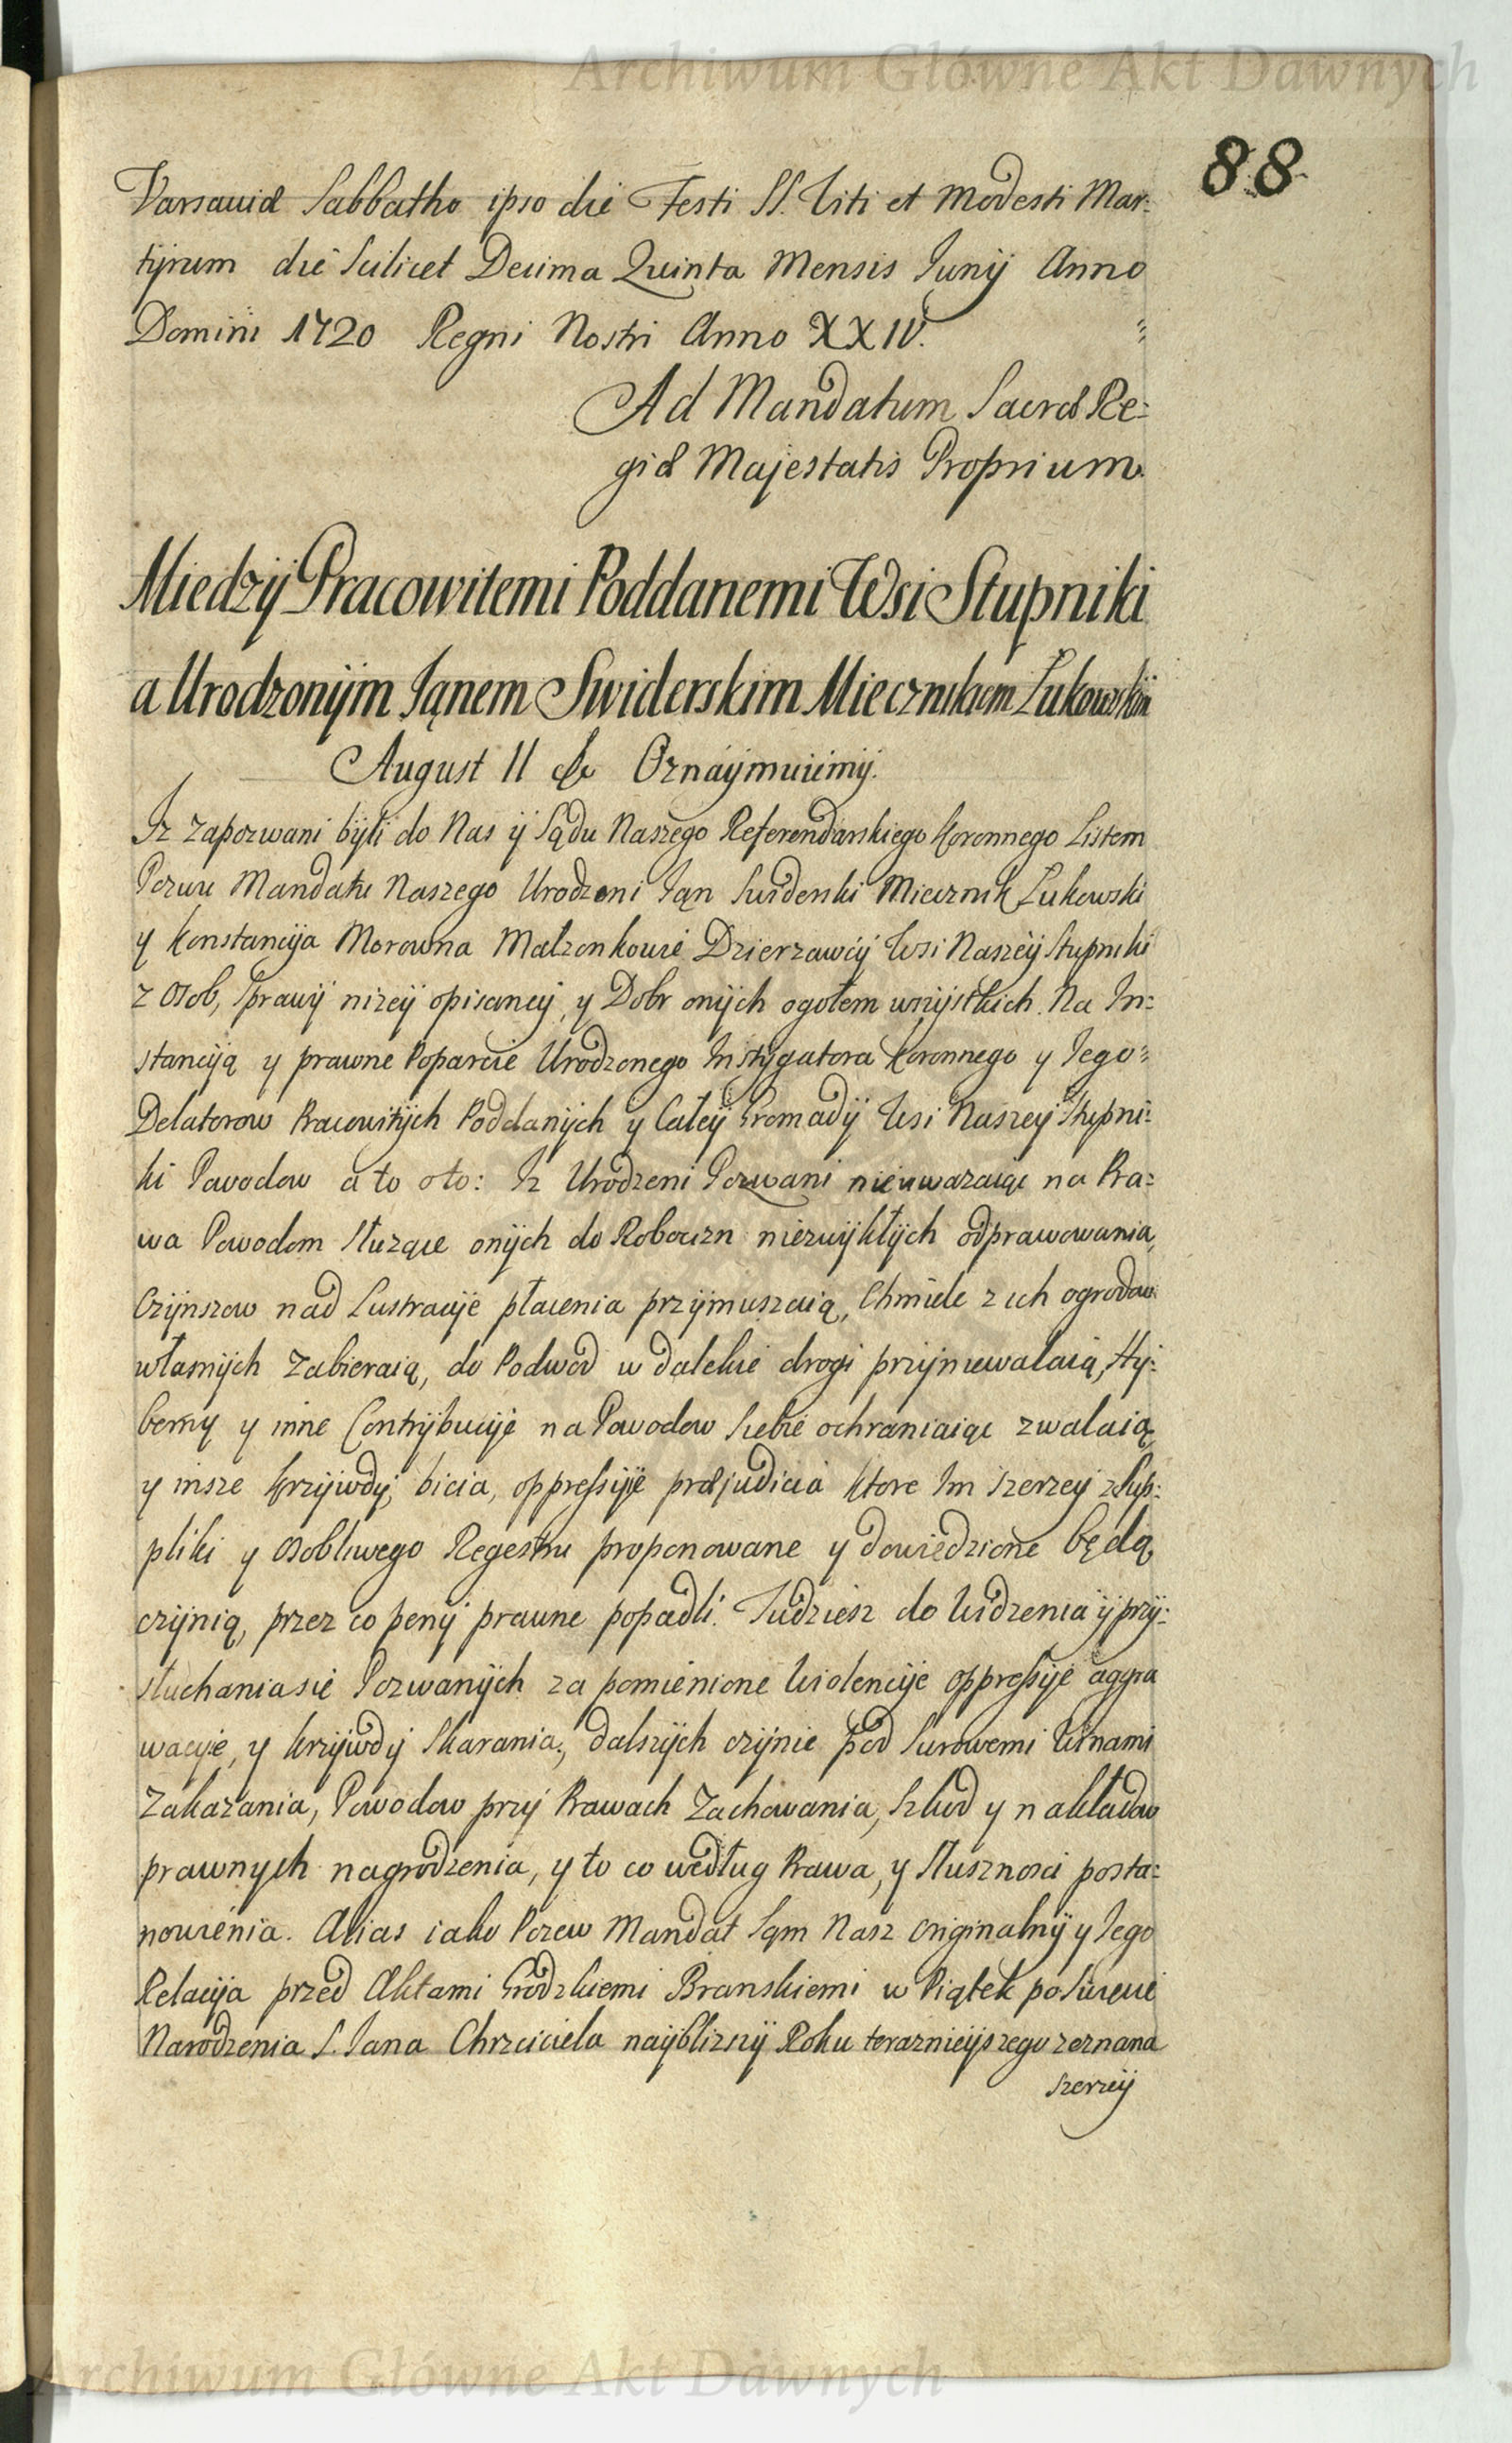 Archiwum Główne Akt Dawnych
88
Varsaviæ Sabbatho ipso die Festi SS. Viti et Modesti Mar:
tyrum die Scilicet Decima Quinta Mensis Junij Anno
Domini 1720 Regni Nostri Anno XXIV.
Ad Mandatum Sacræ Re:
giæ Majestatis Proprium.
Miedzÿ Pracowitemi Poddanemi Wsi Stupniki
a Urodzonÿm Jąnem Swiderskim Miecznikiem Łukowskim
August II &c Oznaÿmuiemÿ.
Iz zapozwani bÿli do Nas ÿ Sądu Naszego Referendarskiego Koronnego Listem
Pozwu Mandatu Naszego Urodzeni Jąn Swiderski Miecznik Łukowski
y Konstancÿa Morowna Malzonkowie Dzierzawcÿ Wsi Naszeÿ Stupniki
z Osob, Sprawÿ nizeÿ opisaneÿ, y Dobr onÿch ogołem wszÿstkich. Na In:
stancÿą y prawne Poparcie Urodzonego Instÿgatora Koronnego y Jego:
Delatorow Pracowitÿch Poddanÿch y Całeÿ Gromadÿ Wsi Naszeÿ Stupni:
ki Powodow a to oto: Iz Urodzeni Pozwani nieuwazaiąc na Pra:
wa Powodom Słuzące onÿch do Roboczn niezwÿkłÿch odprawowania,
Czÿnszow nad Lustracÿe płacenia przÿmuszaią, Chmiele z ich ogrodow
własnÿch zabieraią, do Podwod w dalekie drogi przÿniewalaią, Hÿ:
bernÿ y inne Contrÿbucÿe na Powodow Siebie ochraniaiąc zwalaią,
y insze krzÿwdÿ, bicia, oppressÿe præjudicia ktore Im szerzeÿ z Sup:
pliki y Osobliwego Regestru proponowane y dowiedzione będą,
czÿnią, przez co penÿ prawne popadli. Tudziesz do Widzenia ÿ przÿ:
słuchania sie Pozwanÿch za pomienione Wiolencÿe oppressÿe aggra
wacÿe, y krzÿwdÿ Skarania, dalszÿch czÿnic pod Surowemi Winami
Zakazania, Powodow przÿ Prawach Zachowania, Szkod y nakładow
prawnych nagrodzenia, y to co według Prawa, y Słusznosci posta:
nowienia. Alias iako Pozew Mandat Sąm Nasz originalnÿ y Jego
Relacÿa przed Aktami Grodzkiemi Branskiemi w Piątek po Swięcie
Narodzenia S. Jana Chrzciciela naÿblizszÿ Roku teraznieÿszego zeznana
szerzeÿ
Archiwum Główne Akt Dawnych